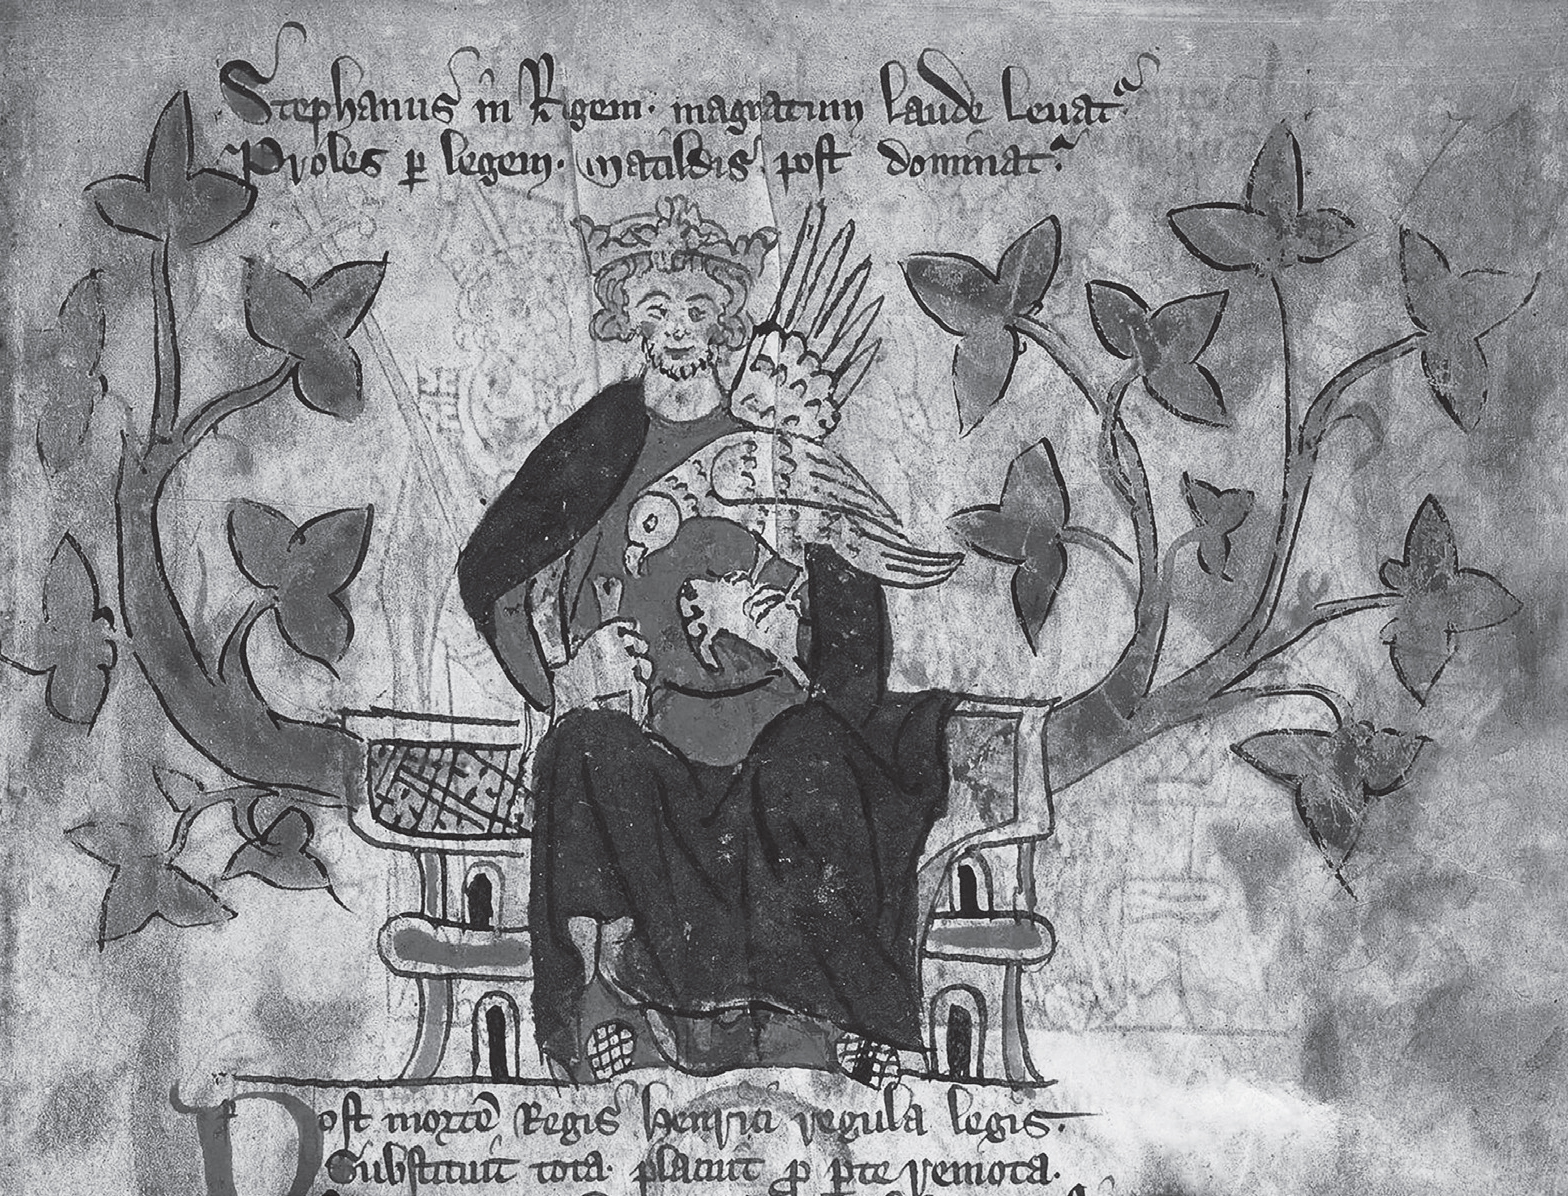 Stephanus in Regem. magnatum laude leuat᷑
Proles per legem. matildis post dominat᷑.
Post mortē Regis henrici regula legis.
Substituit tota. placuit p̱ pte remota.